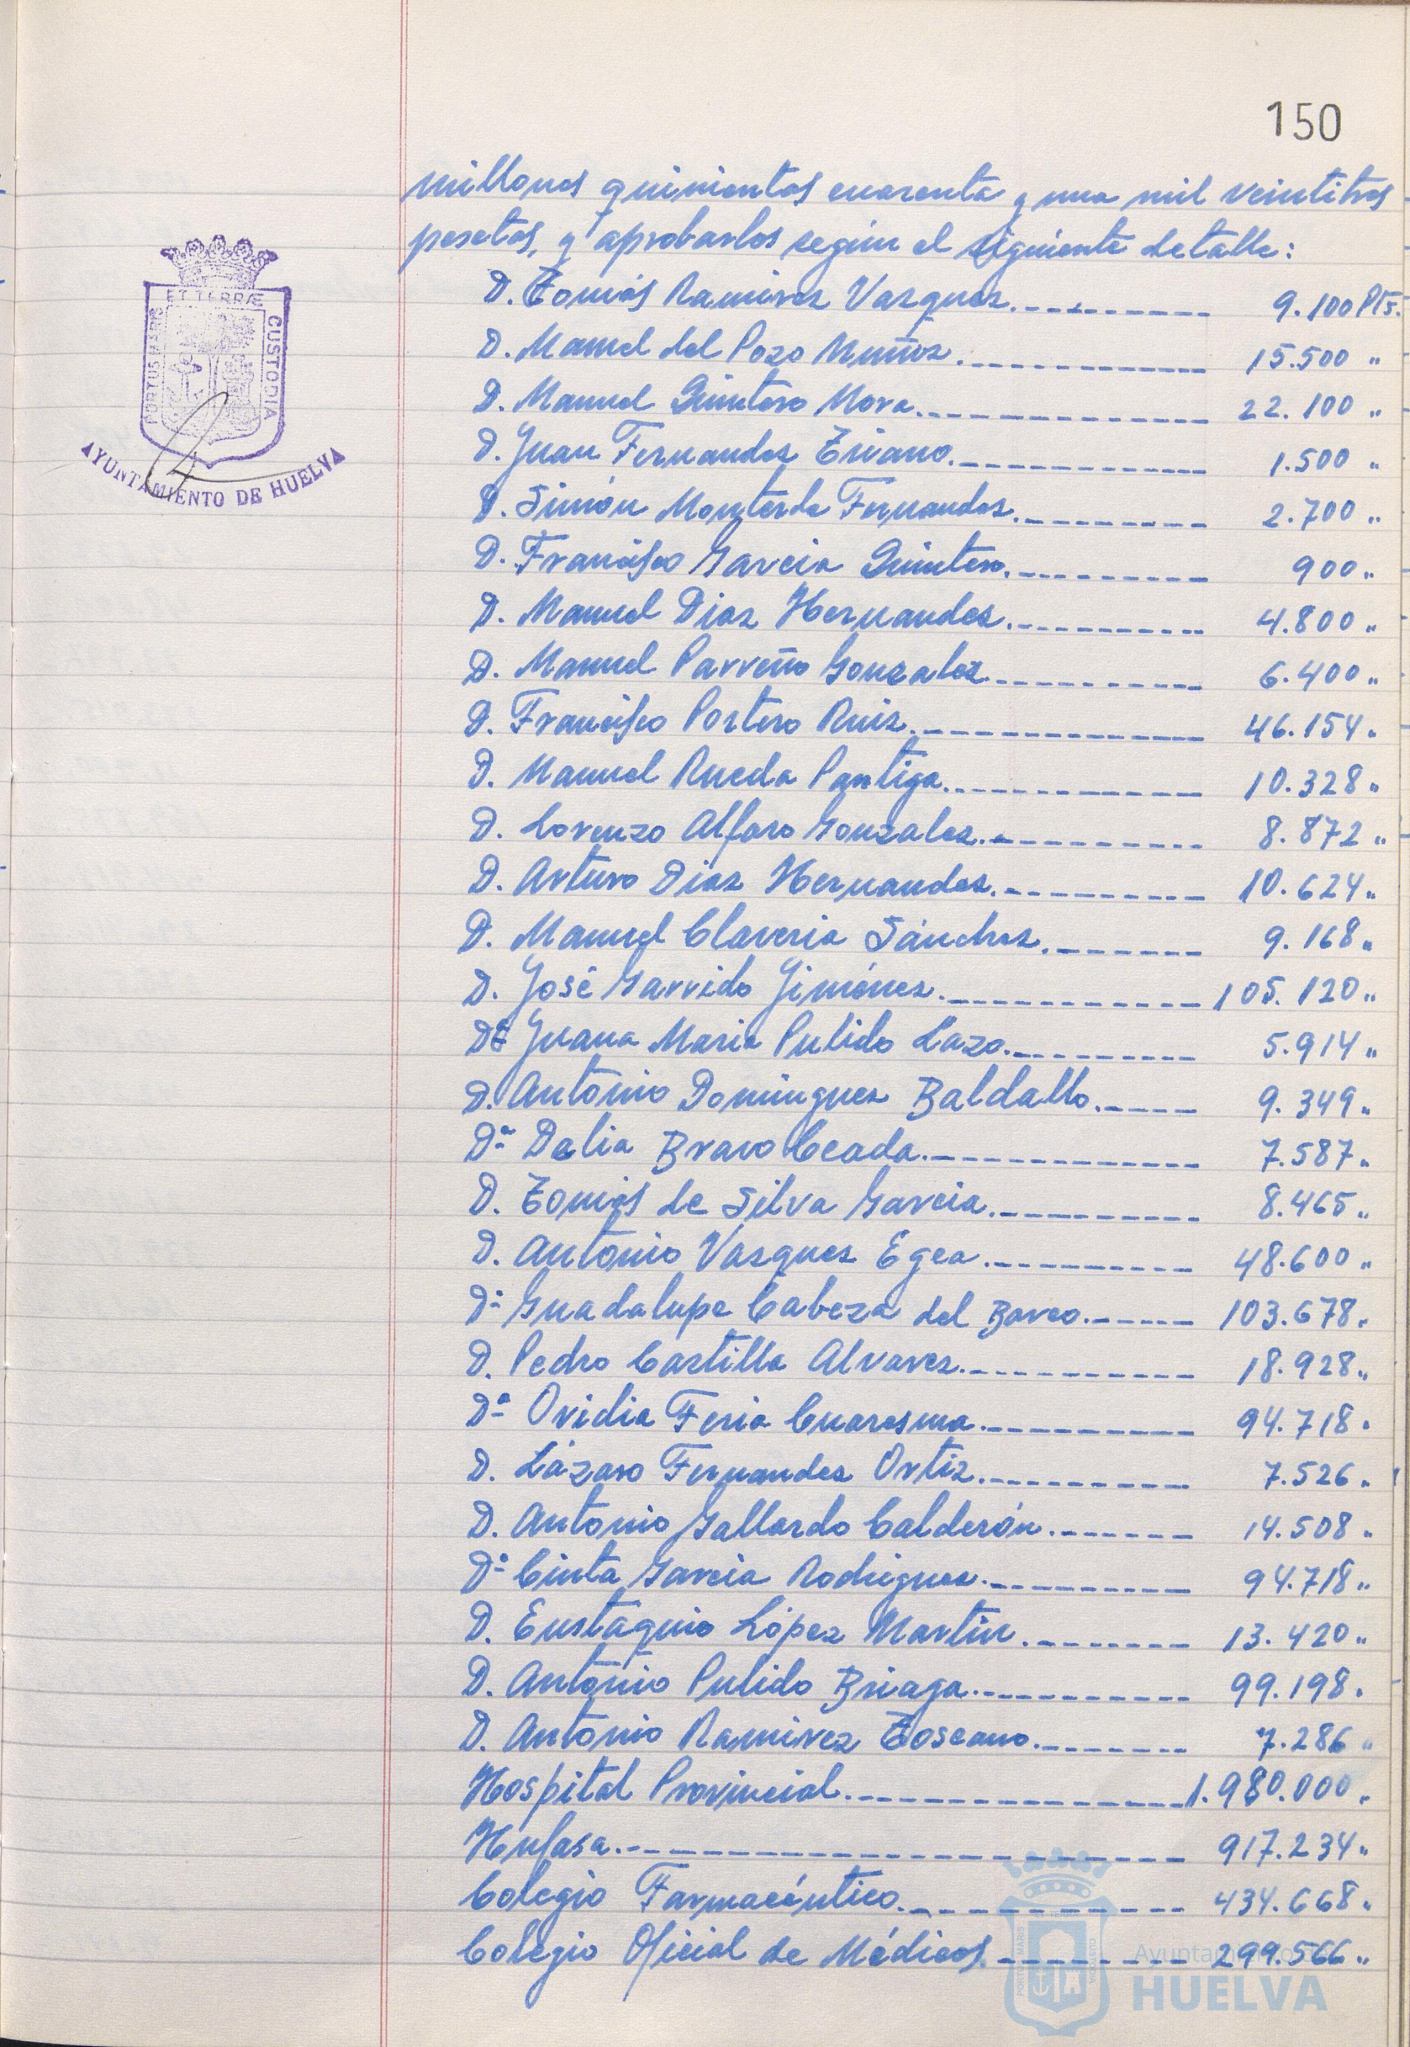 150
millones quinientas cuarenta y una mil veintitres
pesetas, y aprobarlos según el siguiente detalle:
D. Tomás Ramirez Vazquez. 9.100 Pts.
D. Manuel del Pozo Muñoz. 15.500 "
D. Manuel Quintero Mora. 22.100 "
D. Juan Fernandez Triano. 1.500 "
D. Simón Monterde Fernandez. 2.700 "
D. Francisco Garcia Quintero. 900 "
D. Manuel Diaz Hernandez. 4.800 "
D. Manuel Parreño Gonzalez. 6.400 "
D. Francisco Portero Ruiz. 46.154 "
D. Manuel Rueda Pantiga. 10.328 "
D. Lorenzo Alfaro Gonzalez. 8.872 "
D. Arturo Diaz Hernandez. 10.624 "
D. Manuel Claveria Sánchez. 9.168 "
D. José Garrido Jiménez. 105.120 "
Dª Juana Maria Pulido Lazo. 5.914 "
D. Antonio Dominguez Baldallo. 9.349 "
Dª Dalia Bravo Ceada. 7.587 "
D. Tomás de Silva Garcia. 8.465 "
D. Antonio Vazquez Egea. 48.600 "
Dª Guadalupe Cabeza del Barco. 103.678 "
D. Pedro Castilla Alvarez. 18.928 "
Dª Ovidia Feria Cuaresma. 94.718 "
D. Lázaro Fernandez Ortiz. 7.526 "
D. Antonio Gallardo Calderón. 14.508 "
Dª Cinta Garcia Rodriguez. 94.718 "
D. Eustaquio López Martín. 13.420 "
D. Antonio Pulido Briaga. 99.198 "
D. Antonio Ramirez Toscano. 7.286 "
Hospital Provincial. 1.980.000 "
Hufasa. 917.234 "
Colegio Farmacéutico. 434.668 "
Colegio Oficial de Médicos. 299.566 "
PORTUS MARIS ET TERRÆ CUSTODIA
AYUNTAMIENTO DE HUELVA
Ayuntamiento de
HUELVA